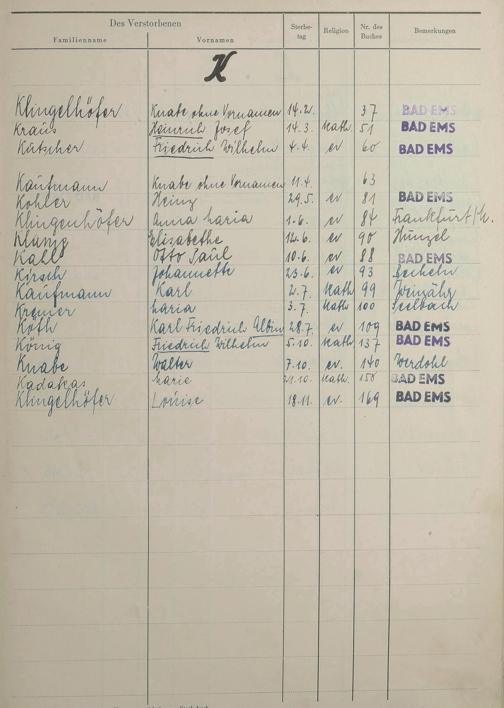 Des Verstorbenen
Familienname Vornamen Sterbe-tag Religion Nr. des Buches Bemerkungen
K
Klingelhöfer Knabe ohne Vornamen 14.2. 37 BAD EMS
Kraus Heinrich Josef 14.3. Kath. 51 BAD EMS
Kutscher Friedrich Wilhelm 4.4. ev 60 BAD EMS
Kaufmann Knabe ohne Vornamen 11.4. 63
Kohler Heinz 29.5. ev 81 BAD EMS
Klingenhöfer Anna Maria 1.6. ev 84 Frankfurt
Elisabethe 12.6. ev 90
Kahl Otto Paul 10.6. ev 88 BAD EMS
Kirsch Johannette 23.6. ev 93
Kaufmann Karl 2.7. Kath 99 Weinähr
Kremer Maria 3.7. Kath 100 Seelbach
Köth Karl Friedrich Albin 28.7. ev 109 BAD EMS
König Friedrich Wilhelm 5.10. Kath 137 BAD EMS
Knabe Walter 7.10. ev. 140 Werdohl
Marie 21.10. Kath. 150 BAD EMS
Klingelhöfer Louise 18.11. ev. 169 BAD EMS